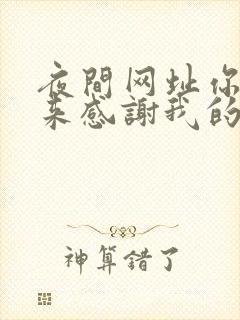 夜間网址你
来感謝我的
神算錯了